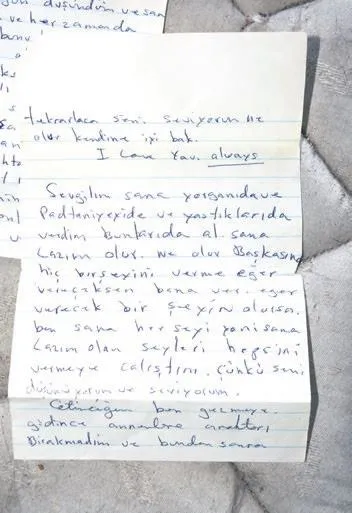 düşündüm ve sana
ve her zamanda
tekrarlaca seni seviyorum ne
olur kendine iyi bak.
I Love You, always
Sevgilim sana yorganıda ve
Padtaniyeyide ve yastıklarıda
verdim bunlarıda al. sana
Lazım olur. ne olur Başkasına
hiç birşeyini verme eğer
vereceksen bana ver. eğer
verecek bir şeyin olursa.
ben sana herseyi yani sana
Lazım olan seyleri hepsini
vermeye calıştım. Çünkü seni
düşünüyorum ve seviyorum.
Cetinciğim ben gezmeye
gidince annenlere anahtarı
Bırakmadım ve bundan sonra